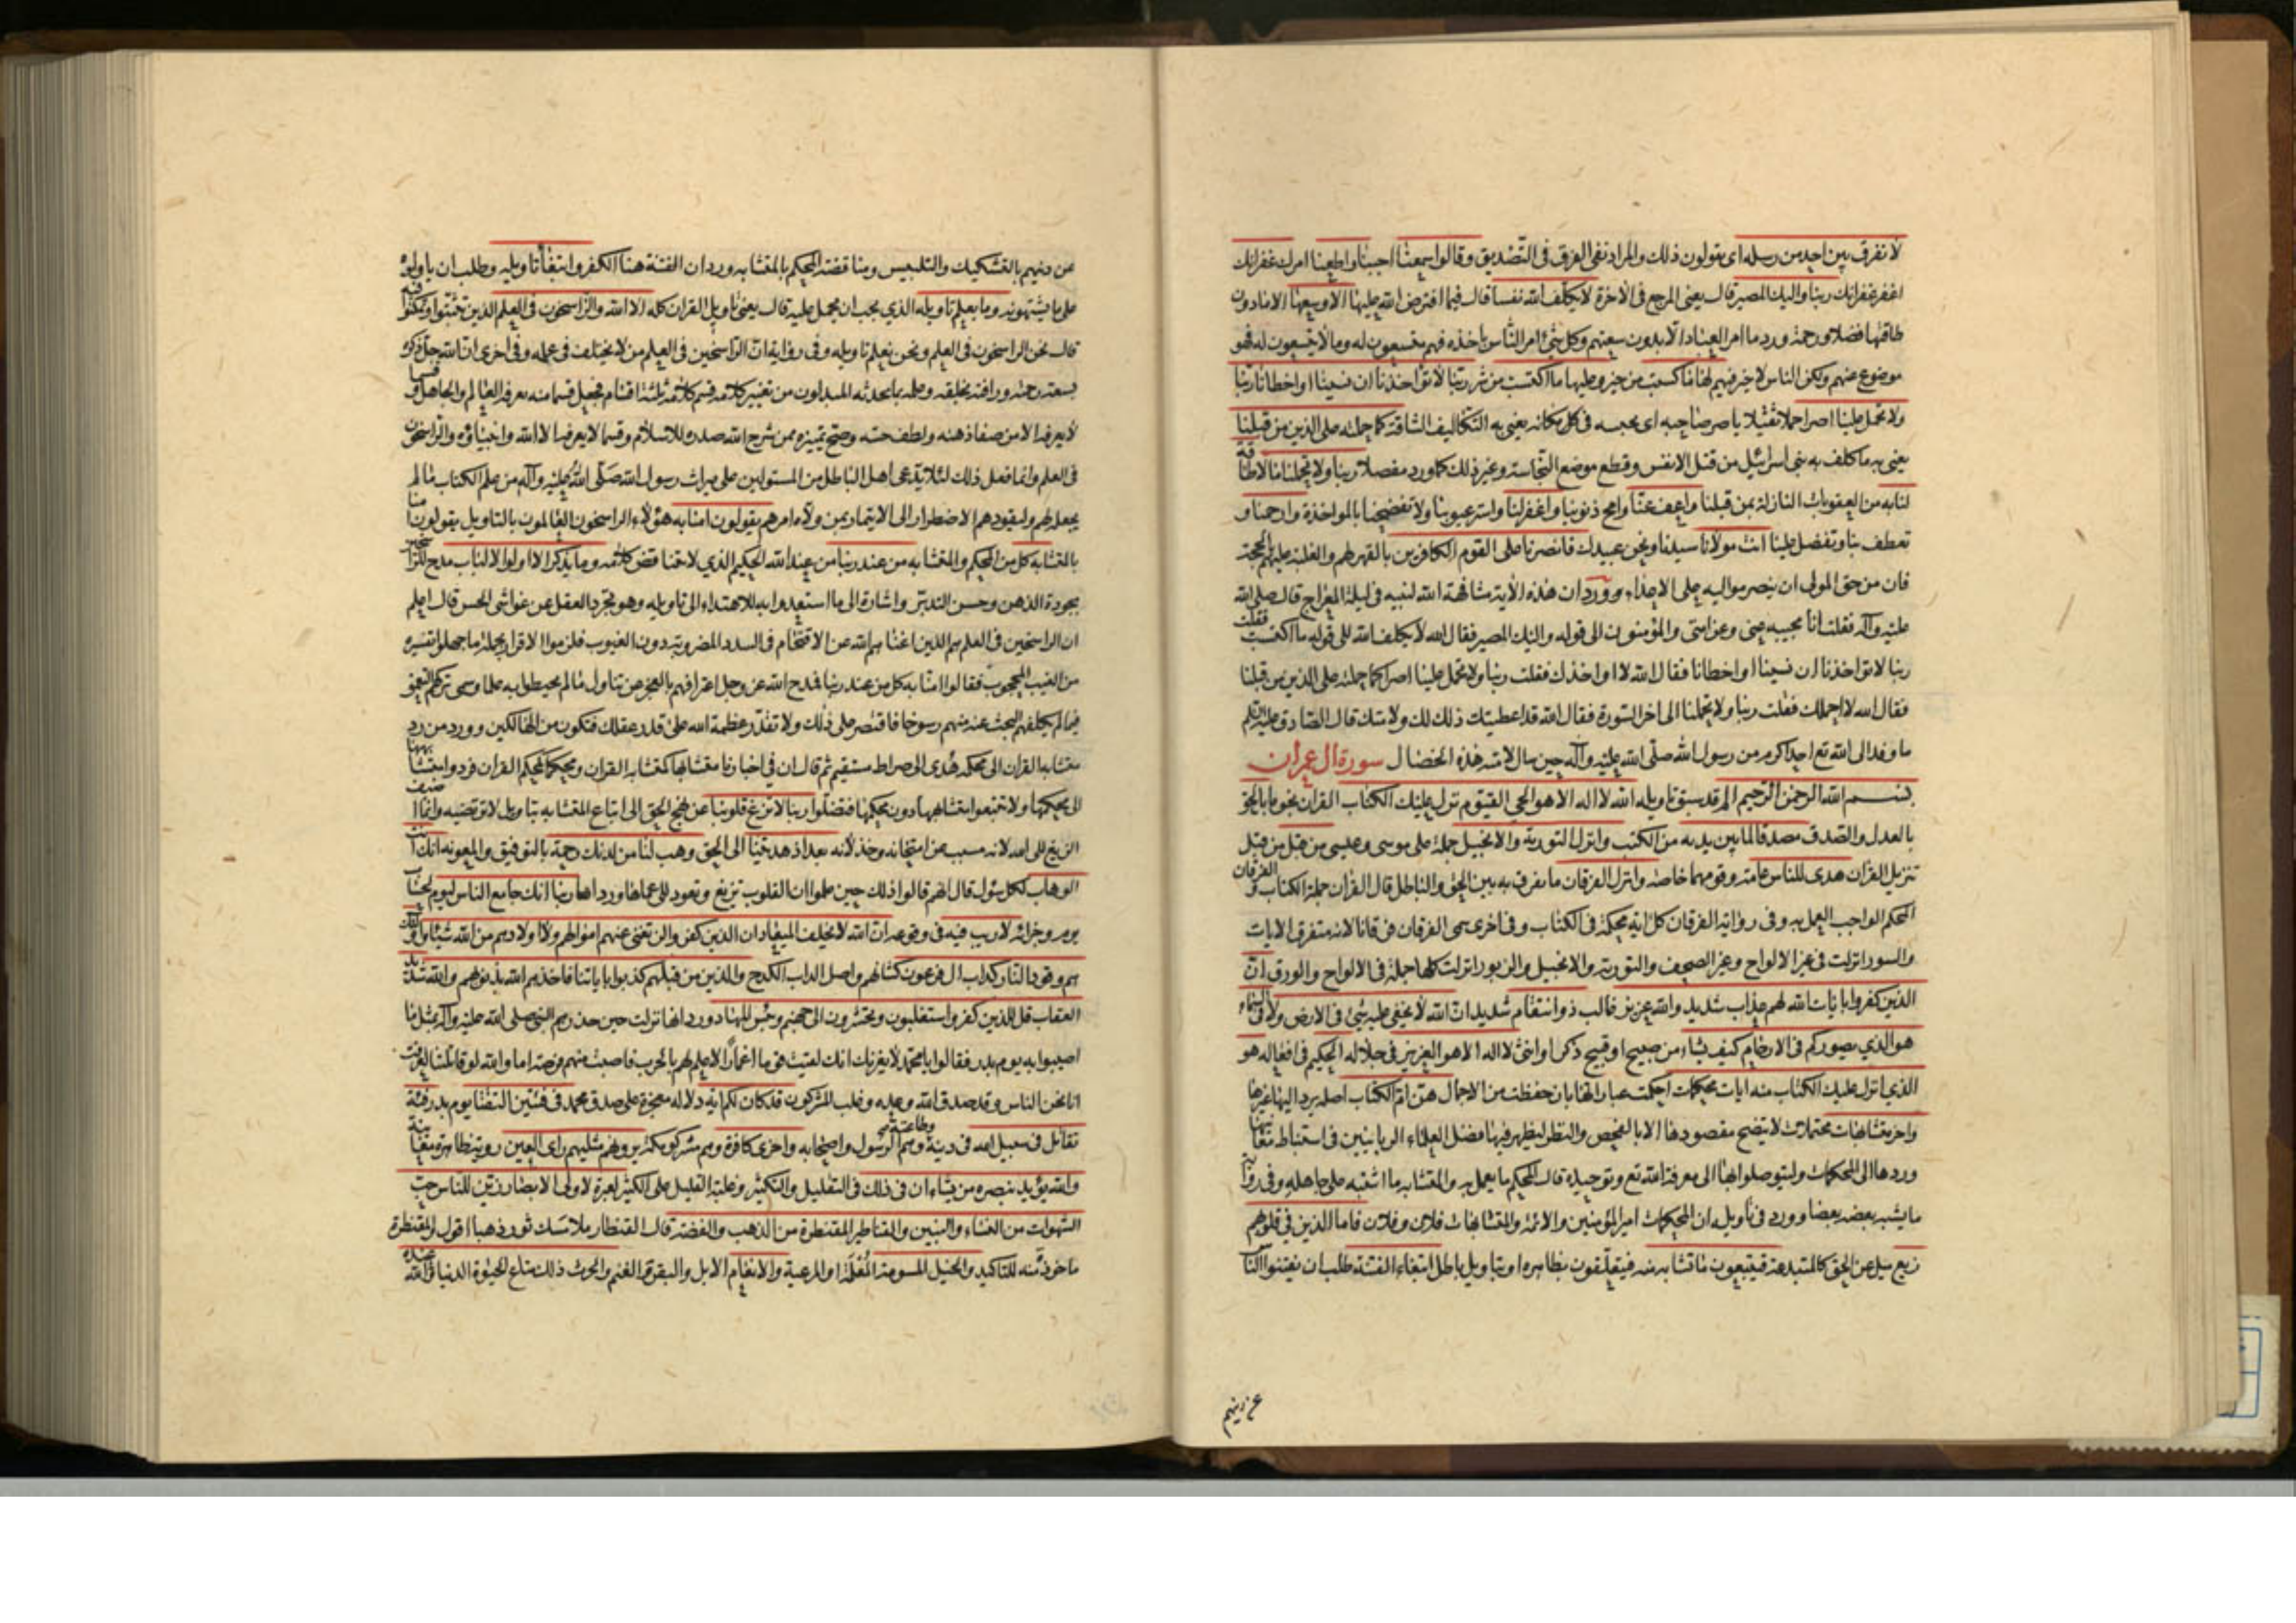 لا نفرق بين احد من رسله اى يقولون ذلك والمراد نفى الفرق فى التصديق وقالوا سمعنا اجبنا واطعنا امرك غفرانك
اغفر غفرانك ربنا واليك المصير قال يعنى المرجع فى الاخرة لا يكلف الله نفسا قال فيما افترض الله عليها الا وسعها الا ما دون
طاقتها فضلا ورحمة ورد ما امر العباد الا بدون سعتهم وكل شئ امر الناس باخذه فهم متسعون له وما لا يتسعون له فهو
موضوع عنهم ولكن الناس لا خير فيهم لها ما كسبت من خير وعليها ما اكتسبت من شر ربنا لا تؤاخذنا ان نسينا او اخطانا ربنا
ولا تحمل علينا اصرا حملا ثقيلا ياصر صاحبه اى يحبسه فى كل مكانه يعنى به التكاليف الشاقة كما حملته على الذين من قبلنا
يعنى به ما كلف به بنى اسرائيل من قتل الانفس وقطع موضع النجاسة وغير ذلك كما ورد مفصلا ربنا ولا تحملنا ما لا طاقة
لنا به من العقوبات النازلة بمن قبلنا واعف عنا وامح ذنوبنا واغفر لنا واستر عيوبنا ولا تفضحنا بالمواخذة وارحمنا و
تعطف بنا وتفضل علينا انت مولانا سيدنا ونحن عبيدك فانصرنا على القوم الكافرين بالقهر لهم والغلبة عليهم بالحجة
فان من حق المولى ان ينصر مواليه على الاعداء وورد ان هذه الاية مشافهة الله لنبيه فى ليلة المعراج قال صلى الله
عليه وآله فقلت انا مجيبه عنى وعن امتى والمؤمنون الى قوله واليك المصير فقال الله لا يكلف الله الى قوله ما اكتسبت فقلت
ربنا لا تؤاخذنا ان نسينا او اخطانا فقال الله لا اواخذك فقلت ربنا ولا تحمل علينا اصرا كما حملته على الذين من قبلنا
فقال الله لا احملك فقلت ربنا ولا تحملنا الى اخر السورة فقال الله قد اعطيتك ذلك لك ولامتك قال الصادق عليه السلم
ما وفد الى الله تع احد اكرم من رسول الله صلى الله عليه وآله حين سال لامته هذه الخصال سورة ال عمران
بسم الله الرحمن الرحيم الم قد سبق تاويله الله لا اله الا هو الحى القيوم نزل عليك الكتاب القران نجوما بالحق
بالعدل والصدق مصدقا لما بين يديه من الكتب وانزل التورية والانجيل جملة على موسى وعيسى من قبل من قبل
تنزيل القران هدى للناس عامة وقومهما خاصة وانزل الفرقان ما يفرق به بين الحق والباطل قال القران جملة الكتاب والفرقان
المحكم الواجب العمل به وفى رواية الفرقان كل اية محكمة فى الكتاب وفى اخرى سمى الفرقان فرقانا لانه متفرق الايات
والسور انزلت فى غير الالواح وغير الصحف والتورية والانجيل والزبور انزلت كلها جملة فى الالواح والورق ان
الذين كفروا بايات الله لهم عذاب شديد والله عزيز غالب ذو انتقام شديد ان الله لا يخفى عليه شئ فى الارض ولا فى السماء
هو الذي يصوركم فى الارحام كيف يشاء من صبيح او قبيح ذكر او انثى لا اله الا هو العزيز فى جلاله الحكيم فى افعاله هو
الذي انزل عليك الكتاب منه ايات محكمات احكمت عباراتها بان حفظت من الاجمال هن ام الكتاب اصله يرد اليها غيرها
واخر متشابهات محتملات لا يتضح مقصودها الا بالفحص والنظر ليظهر فيها فضل العلماء الربانيين فى استنباط معانيها
وردها الى المحكمات وليتوصلوا بها الى معرفة الله تع وتوحيده قال المحكم ما يعمل به والمتشابه ما اشتبه على جاهله وفى رواية
ما يشبه بعضه بعضا وورد فى تاويله ان المحكمات امير المؤمنين والائمة والمتشابهات فلان وفلان فاما الذين فى قلوبهم
زيغ ميل عن الحق كالمبتدعة فيتبعون ما تشابه منه فيتعلقون بظاهره او بتاويل باطل ابتغاء الفتنة طلب ان يفتنوا الناس
عن دينهم
عن دينهم بالتشكيك والتلبيس ومناقضة المحكم بالمتشابه ورد ان الفتنة هنا الكفر وابتغاء تاويله وطلب ان ياولوه
على ما يشتهونه وما يعلم تاويله الذي يجب ان يحمل عليه قال يعنى تاويل القران كله الا الله والراسخون فى العلم الذين تثبتوا وتمكنوا فيه
قال نحن الراسخون فى العلم ونحن نعلم تاويله وفى رواية ان الراسخين فى العلم من لا يختلف فى علمه وفى اخرى ان الله جل ذكره
لسعة رحمته ورافته بخلقه وعلمه بما يحدثه المبدلون من تغيير كلامه قسم كلامه ثلثة اقسام فجعل قسما منه يعرفه العالم والجاهل وقسما
لا يعرفه الا من صفا ذهنه ولطف حسه وصح تمييزه ممن شرح الله صدره للاسلام وقسما لا يعرفه الا الله وانبياؤه والراسخون
فى العلم وانما فعل ذلك لئلا يدعى اهل الباطل من المستولين على ميراث رسول الله صلى الله عليه وآله من علم الكتاب ما لم
يجعله لهم وليقودهم الاضطرار الى الايتمار بمن ولاه امرهم يقولون امنا به هؤلاء الراسخون العالمون بالتاويل يقولون امنا
بالمتشابه كل من المحكم والمتشابه من عند ربنا من عند الله الحكيم الذي لا يتناقض كلامه وما يذكر الا اولوا الالباب مدح للراسخين
بجودة الذهن وحسن التدبر واشارة الى ما استعدوا به للاهتداء الى تاويله وهو تجرد العقل عن غواشى الحس قال اعلم
ان الراسخين فى العلم هم الذين اغناهم الله عن الاقتحام فى السدد المضروبة دون الغيوب فلزموا الاقرار بجملة ما جهلوا تفسيره
من الغيب المحجوب فقالوا امنا به كل من عند ربنا فمدح الله عز وجل اعترافهم بالعجز عن تناول ما لم يحيطوا به علما وسمى تركهم التعمق
فيما لم يكلفهم البحث عنه منهم رسوخا فاقتصر على ذلك ولا تقدر عظمة الله على قدر عقلك فتكون من الهالكين وورد من رد
متشابه القران الى محكمه هدى الى صراط مستقيم ثم قال ان فى اخبارنا متشابها كمتشابه القران ومحكما كمحكم القران فردوا متشابهها
الى محكمها ولا تتبعوا متشابهها دون محكمها فتضلوا ربنا لا تزغ قلوبنا عن نهج الحق الى اتباع المتشابه بتاويل لا ترتضيه وانما اضيف
الزيغ الى الله لانه مسبب عن امتحانه وخذلانه بعد اذ هديتنا الى الحق وهب لنا من لدنك رحمة بالتوفيق والمعونة انك انت
الوهاب لكل سؤل قال انهم قالوا ذلك حين علموا ان القلوب تزيغ وتعود الى عماها ورداها ربنا انك جامع الناس ليوم لحساب
يوم وجزائه لا ريب فيه فى وقوعه ان الله لا يخلف الميعاد ان الذين كفروا لن تغنى عنهم اموالهم ولا اولادهم من الله شيئا واولئك
هم وقود النار كداب ال فرعون كشانهم واصل الداب الكدح والذين من قبلهم كذبوا باياتنا فاخذهم الله بذنوبهم والله شديد
العقاب قل للذين كفروا ستغلبون وتحشرون الى جهنم وبئس المهاد ورد انها نزلت حين حذرهم النبى صلى الله عليه وآله مثل ما
اصيبوا به يوم بدر فقالوا يا محمد لا يغرنك انك لقيت قوما اغمارا لا علم لهم بالحرب فاصبت منهم فرصة اما والله لو قاتلتنا لعرفت
انا نحن الناس وقد صدق الله وعده وغلب المشركون قد كان لكم اية دلالة معجزة على صدق محمد فى فئتين التقتا يوم بدر فئة
تقاتل فى سبيل الله فى دينه وطاعته وهم الرسول واصحابه واخرى كافرة وهم مشركو مكة يرونهم مثليهم راى العين روية ظاهرة معاينة
والله يؤيد بنصره من يشاء ان فى ذلك فى التقليل والتكثير وغلبة القليل على الكثير لعبرة لاولى الابصار زين للناس حب
الشهوات من النساء والبنين والقناطير المقنطرة من الذهب والفضة قال القنطار ملا مسك ثور ذهبا اقول والمقنطرة
ماخوذة منه للتاكيد والخيل المسومة المعلمة او المرعية والانعام الابل والبقر والغنم والحرث ذلك متاع الحيوة الدنيا والله عنده